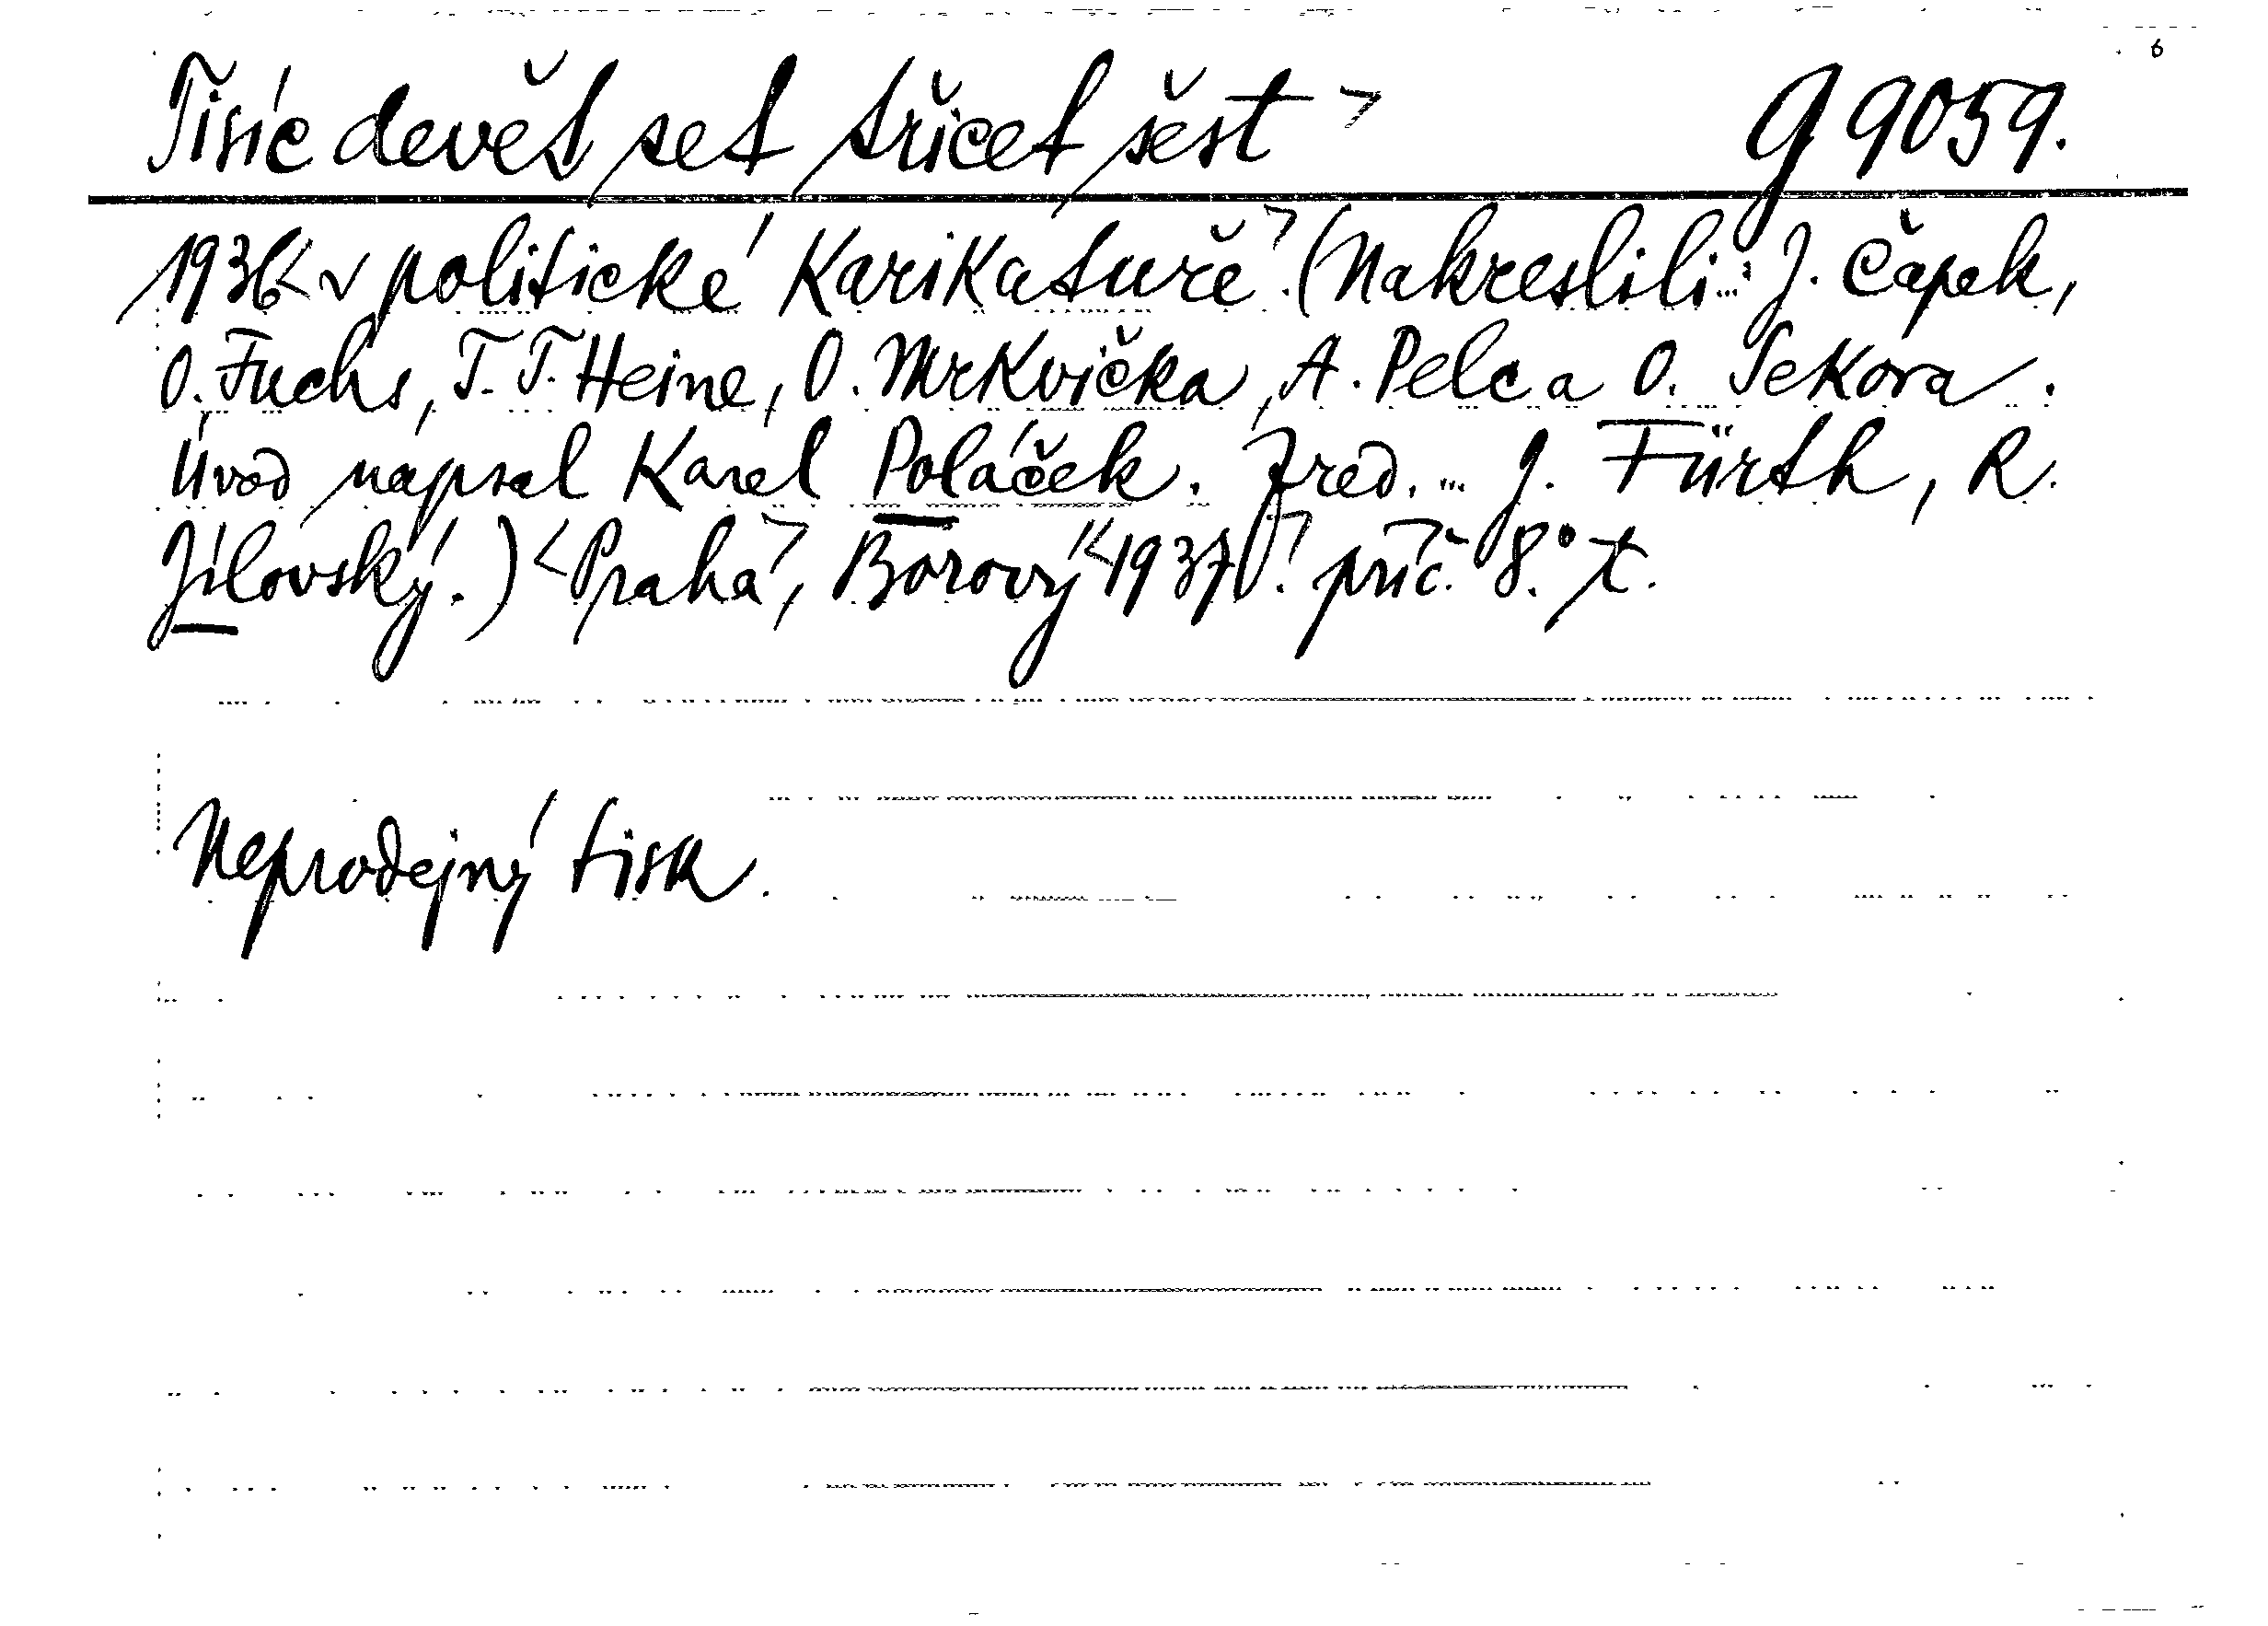 6
Tisíc devět set třicet šest > g 9059.
1936 < v politické karikatuře >. (Nakreslili ...: J. Čapek,
O. Fuchs, T. T. Heine, O. Mrkvička, A. Pelc a O. Sekora.
Úvod napsal Karel Poláček. Zred. ... J. Fürth, R.
Jílovský.) < Praha >, Borový < 1937 >. příč. 8.° +.
Neprodejný tisk.